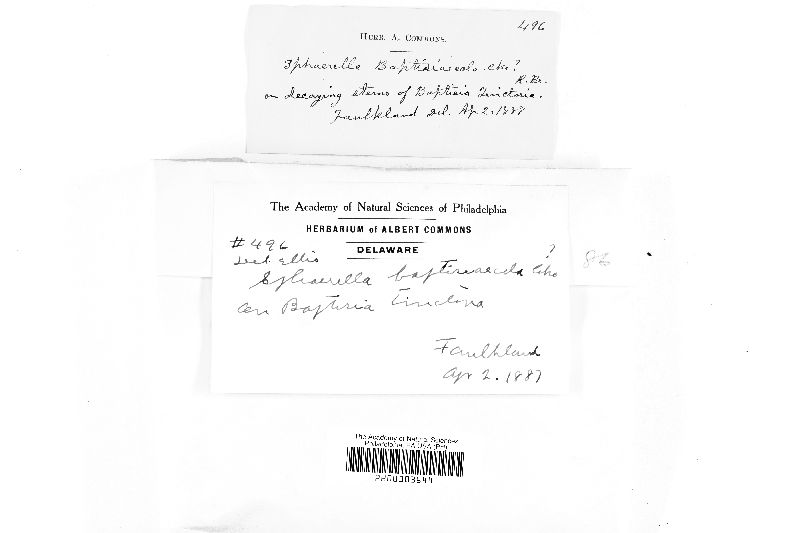 496
HERB. A. COMMONS.
Sphaerella Baptisiaecola Cke?
R. Br.
on decaying stems of Baptisia Tinctoria.
Faulkland Del. Ap 2. 1887
The Academy of Natural Sciences of Philadelphia
HERBARIUM of ALBERT COMMONS
DELAWARE
#496
det. Ellis
?
Sphaerella baptisiaecola Cke
on Baptisia tinctoria
86
Faulkland
Apr 2. 1887
The Academy of Natural Sciences
Philadelphia, PA USA (PH)